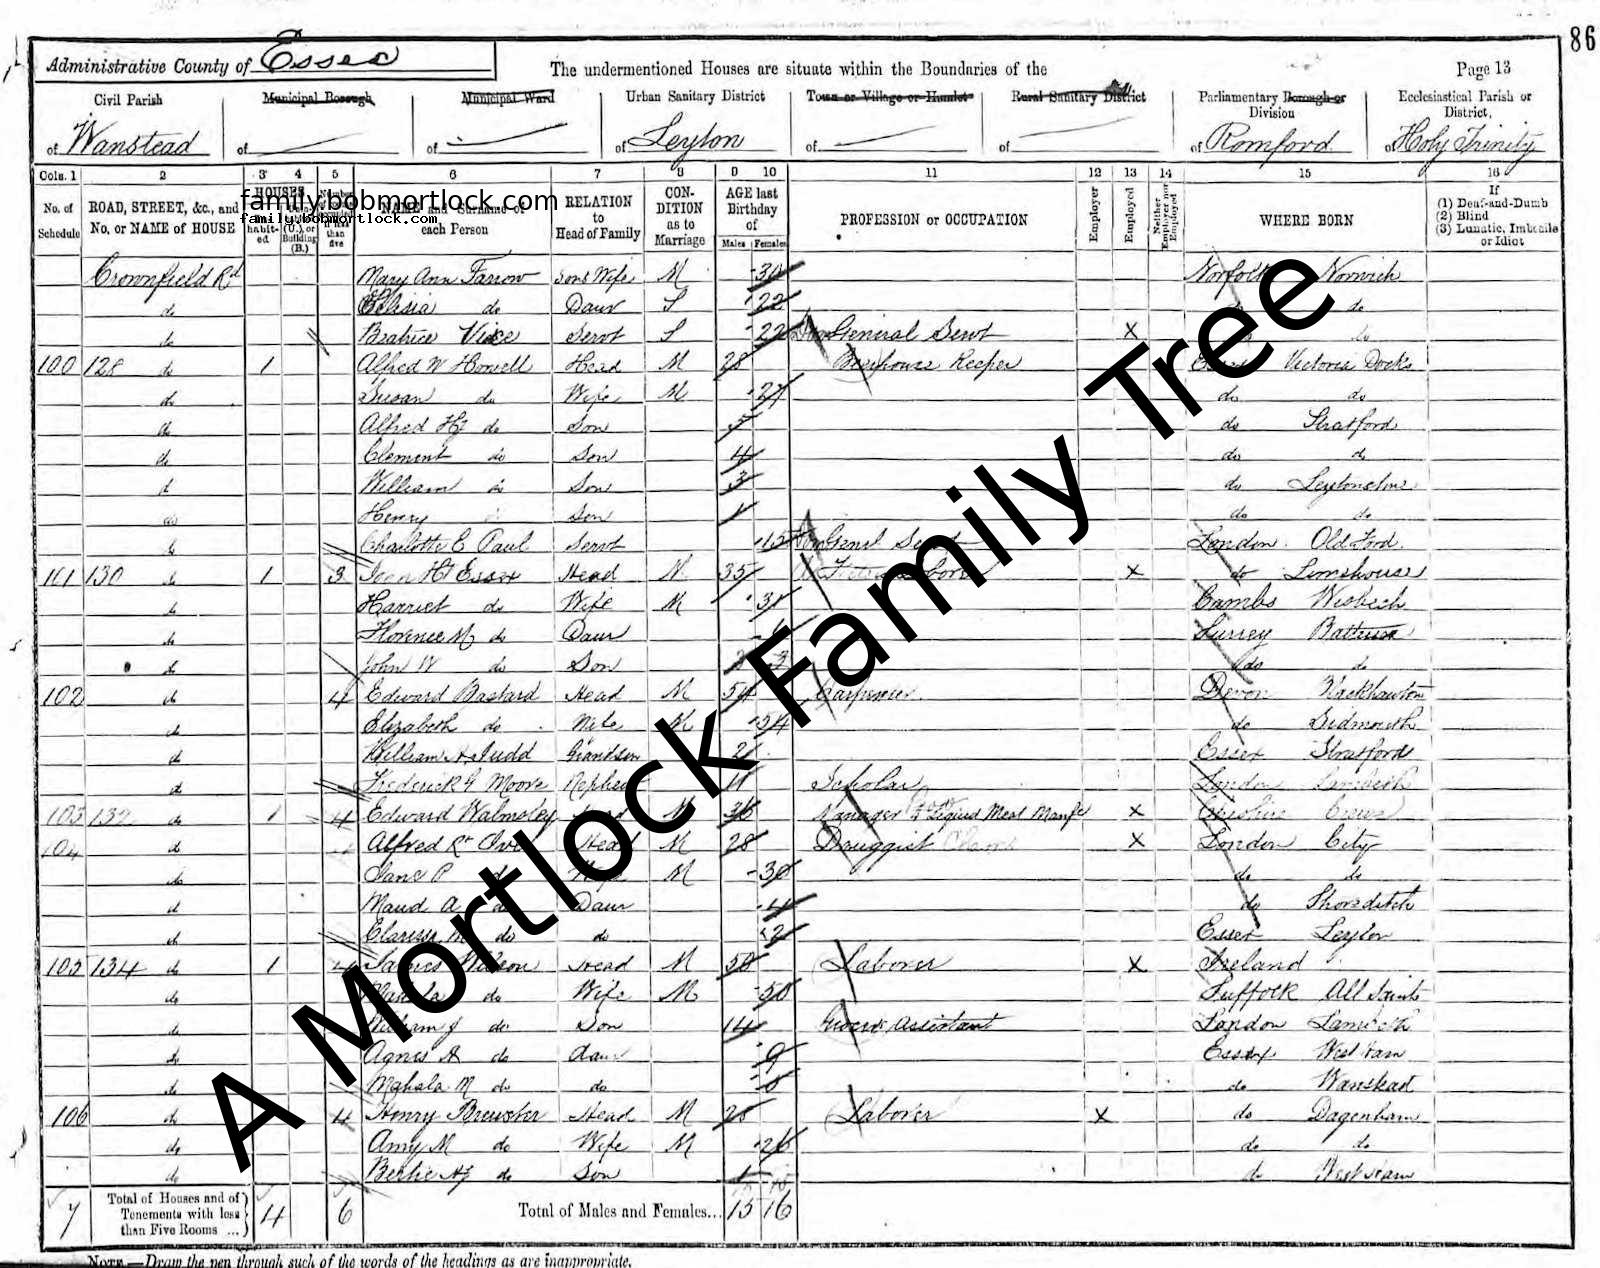 86
Administrative County of Essex
The undermentioned Houses are situate within the Boundaries of the
Page 13
Civil Parish of Wanstead
Municipal Borough of
Municipal Ward of
Urban Sanitary District of Leyton
Town or Village or Hamlet of
Rural Sanitary District of
Parliamentary Borough or Division of Romford
Ecclesiastical Parish or District, of Holy Trinity
Cols. 1 2 3 4 5 6 7 8 9 10 11 12 13 14 15 16
No. of Schedule
ROAD, STREET, &c., and No. or NAME of HOUSE
HOUSES
habit-ed
(U.), or Building (B.)
than five
NAME and Surname of each Person
familybobmortlock.com
familybobmortlock.com
RELATION to Head of Family
CON-DITION as to Marriage
AGE last Birthday of
Males Females
PROFESSION or OCCUPATION
Employer
Employed
Neither Employer nor Employed
WHERE BORN
If (1) Deaf-and-Dumb (2) Blind (3) Lunatic, Imbecile or Idiot
Crownfield Rd Mary Ann Farrow Sons Wife M 30 Norfolk Norwich
do do Daur S 22 do
do Beatrice Servt S 22 General Servt X do
100 128 do 1 Alfred W Howell Head M 28 Beerhouse Keeper Essex Victoria Docks
do Susan do Wife M 27 do do
do Alfred H do Son 5 do Stratford
do Clement do Son 4 do do
do William do Son 3 do Leytonstone
do Henry Son 1 do do
do Charlotte E Paul Servt 15 Genl Servt London Old Ford
101 130 do 1 3 John H Essex Head M 35 X do Limehouse
do Harriet do Wife M 31 Cambs Wisbech
do Florence M do Daur Surrey
do John W do Son do do
102 do 4 Edward Bastard Head M 54 Carpenter Devon
do Elizabeth do Wife M 54 do Sidmouth
do William A Judd Grandson 2 Essex Stratford
do Frederick G Moore Nephew 11 Scholar London Lambeth
103 132 do 1 4 Edward Walmsley Head M 36 Manager Liquid Meat Manfr X Cheshire Crewe
104 do Alfred R Head M 28 Druggist X London City
do Jane P do Wife M 30 do do
do Maud A do Daur 4 do Shoreditch
do Clarissa M do do 2 Essex Leyton
105 134 do 1 4 James Wilson Head M 50 Laborer X Ireland
do Mahala do Wife M 50 Suffolk All Saints
do William J do Son 14 Grocers Assistant London Lambeth
do Agnes A do daur 9 Essex West Ham
do Mahala M do do 6 do Wanstead
106 do 4 Henry Brewster Head M 28 Laborer X do Dagenham
do Amy M do Wife M 26 do do
do Bertie H do Son 1 do West Ham
7 Total of Houses and of Tenements with less than Five Rooms ... 4 6 Total of Males and Females... 15 16
NOTE.—Draw the pen through such of the words of the headings as are inappropriate.
A Mortlock Family Tree